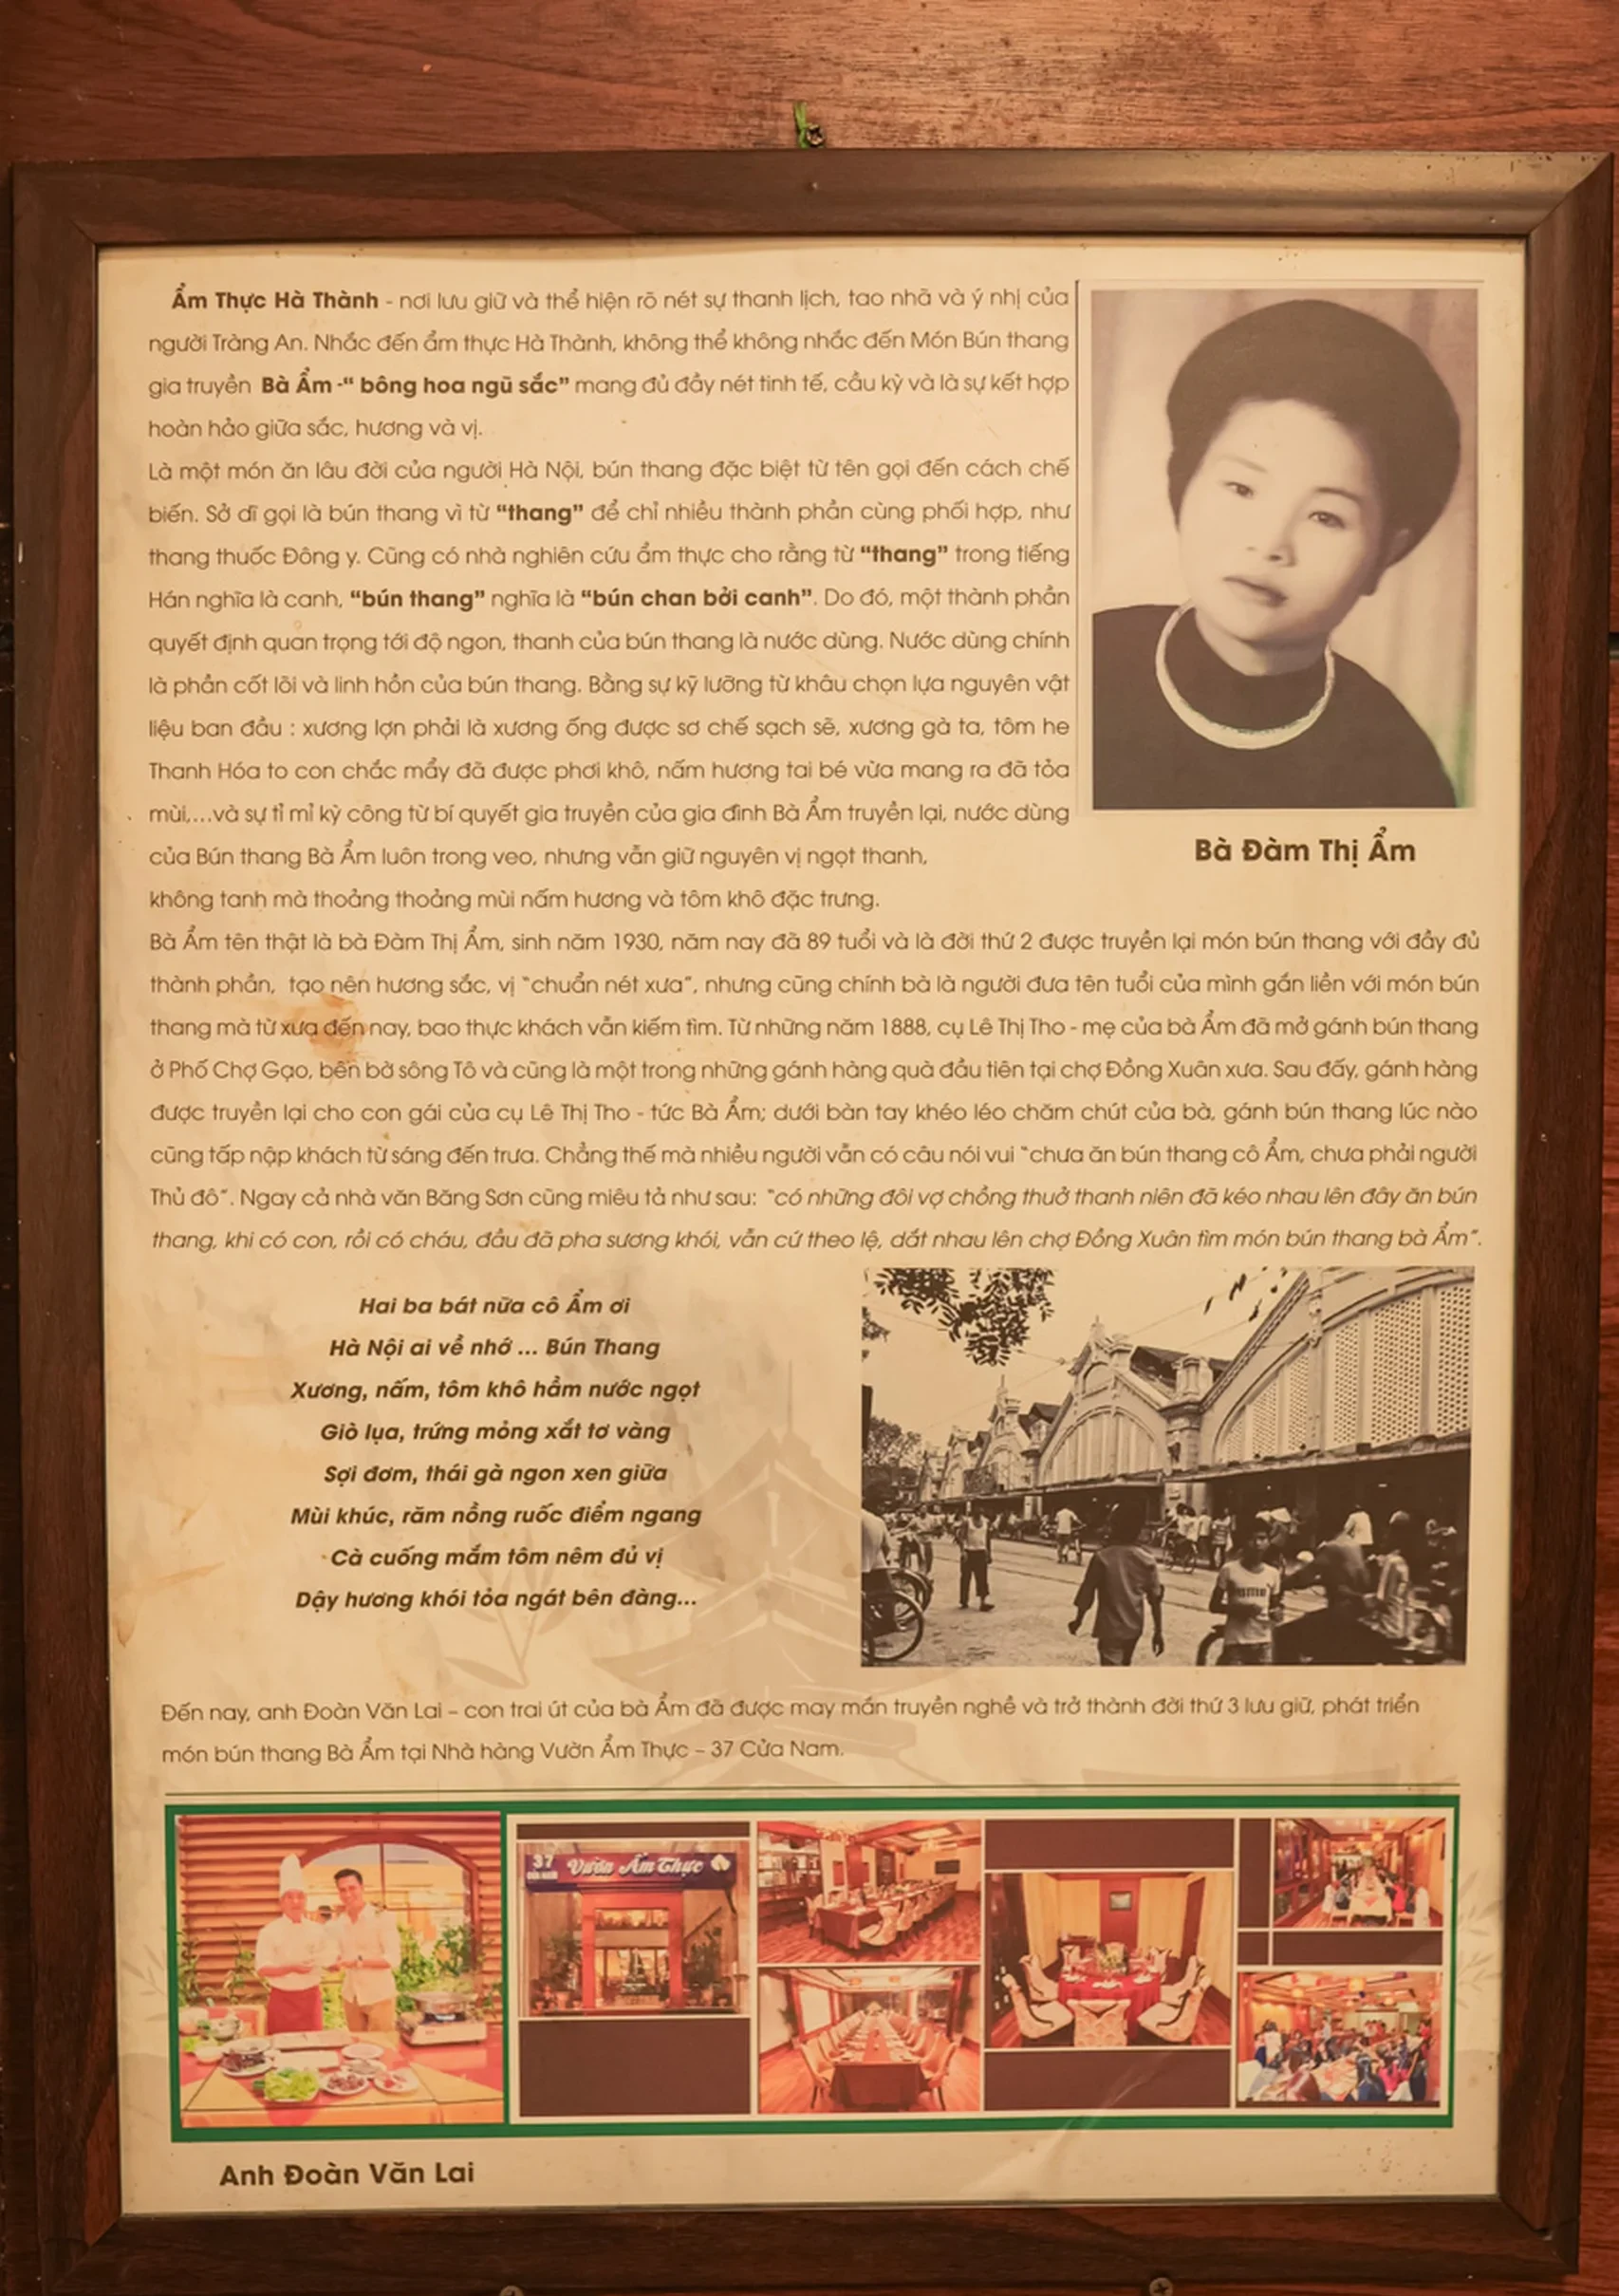 Ẩm Thực Hà Thành - nơi lưu giữ và thể hiện rõ nét sự thanh lịch, tao nhã và ý nhị của
người Tràng An. Nhắc đến ẩm thực Hà Thành, không thể không nhắc đến Món Bún thang
gia truyền Bà Ẩm -“ bông hoa ngũ sắc” mang đủ đầy nét tinh tế, cầu kỳ và là sự kết hợp
hoàn hảo giữa sắc, hương và vị.
Là một món ăn lâu đời của người Hà Nội, bún thang đặc biệt từ tên gọi đến cách chế
biến. Sở dĩ gọi là bún thang vì từ “thang” để chỉ nhiều thành phần cùng phối hợp, như
thang thuốc Đông y. Cũng có nhà nghiên cứu ẩm thực cho rằng từ “thang” trong tiếng
Hán nghĩa là canh, “bún thang” nghĩa là “bún chan bởi canh”. Do đó, một thành phần
quyết định quan trọng tới độ ngon, thanh của bún thang là nước dùng. Nước dùng chính
là phần cốt lõi và linh hồn của bún thang. Bằng sự kỹ lưỡng từ khâu chọn lựa nguyên vật
liệu ban đầu : xương lợn phải là xương ống được sơ chế sạch sẽ, xương gà ta, tôm he
Thanh Hóa to con chắc mẩy đã được phơi khô, nấm hương tai bé vừa mang ra đã tỏa
mùi,...và sự tỉ mỉ kỳ công từ bí quyết gia truyền của gia đình Bà Ẩm truyền lại, nước dùng
của Bún thang Bà Ẩm luôn trong veo, nhưng vẫn giữ nguyên vị ngọt thanh,
không tanh mà thoảng thoảng mùi nấm hương và tôm khô đặc trưng.
Bà Đàm Thị Ẩm
Bà Ẩm tên thật là bà Đàm Thị Ẩm, sinh năm 1930, năm nay đã 89 tuổi và là đời thứ 2 được truyền lại món bún thang với đầy đủ
thành phần, tạo nên hương sắc, vị “chuẩn nét xưa”, nhưng cũng chính bà là người đưa tên tuổi của mình gắn liền với món bún
thang mà từ xưa đến nay, bao thực khách vẫn kiếm tìm. Từ những năm 1888, cụ Lê Thị Tho - mẹ của bà Ẩm đã mở gánh bún thang
ở Phố Chợ Gạo, bên bờ sông Tô và cũng là một trong những gánh hàng quà đầu tiên tại chợ Đồng Xuân xưa. Sau đấy, gánh hàng
được truyền lại cho con gái của cụ Lê Thị Tho - tức Bà Ẩm; dưới bàn tay khéo léo chăm chút của bà, gánh bún thang lúc nào
cũng tấp nập khách từ sáng đến trưa. Chẳng thế mà nhiều người vẫn có câu nói vui “chưa ăn bún thang cô Ẩm, chưa phải người
Thủ đô”. Ngay cả nhà văn Băng Sơn cũng miêu tả như sau: “có những đôi vợ chồng thuở thanh niên đã kéo nhau lên đây ăn bún
thang, khi có con, rồi có cháu, đầu đã pha sương khói, vẫn cứ theo lệ, dắt nhau lên chợ Đồng Xuân tìm món bún thang bà Ẩm”.
Hai ba bát nữa cô Ẩm ơi
Hà Nội ai về nhớ ... Bún Thang
Xương, nấm, tôm khô hầm nước ngọt
Giò lụa, trứng mỏng xắt tơ vàng
Sợi đơm, thái gà ngon xen giữa
Mùi khúc, răm nồng ruốc điểm ngang
Cà cuống mắm tôm nêm đủ vị
Dậy hương khói tỏa ngát bên đàng...
Đến nay, anh Đoàn Văn Lai – con trai út của bà Ẩm đã được may mắn truyền nghề và trở thành đời thứ 3 lưu giữ, phát triển
món bún thang Bà Ẩm tại Nhà hàng Vườn Ẩm Thực – 37 Cửa Nam.
37 Vườn Ẩm Thực
CỬA NAM
Anh Đoàn Văn Lai